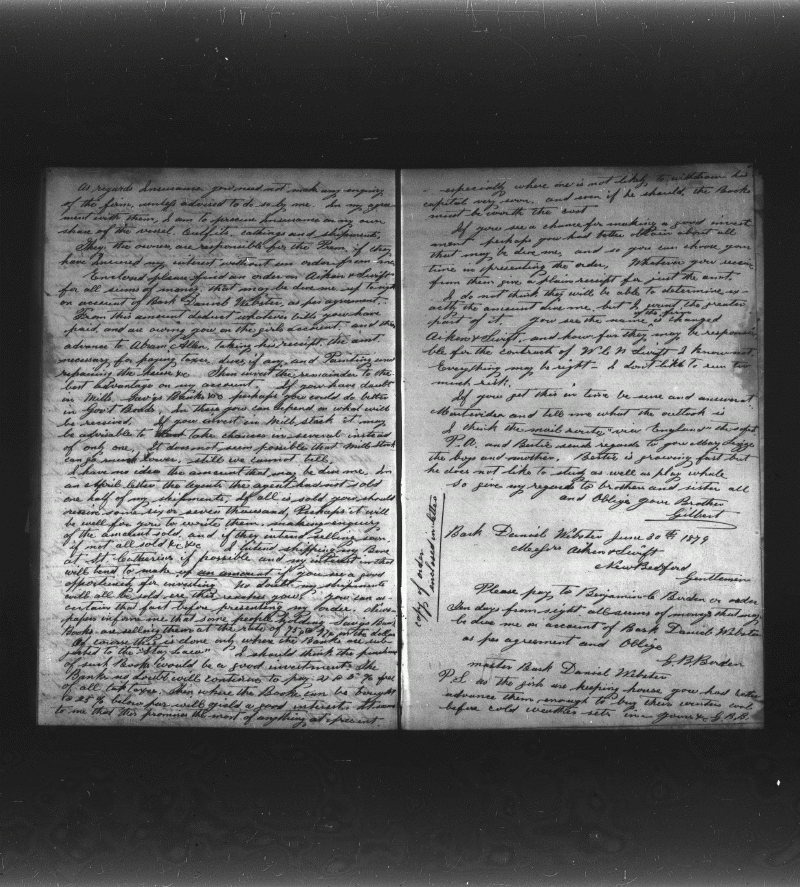 As regards Insurance you need not make any enquiry
of the firm, unless advised to do so by me. In my agree-
ment with them, I am to procure Insurance on my own
share of the vessel, Outfits, catchings and shipments.
They the owner are responsible for the Prem, if they
have Insured my interest without an order from me
Enclosed please find an order on Aiken & Swift
for all sums of money that may be due me up to
on account of Bark Daniel Webster, as per agreement.
From this amount deduct whatever bills you have
paid, and are owing you on the girls account, and the
advance to Abram Allen, taking his receipt, the amt
necessary for paying taxes dues if any, and Painting and
repairing the house &c. Then invest the remainder to the
best advantage on my account. If you have doubt
in Mills, Saving Banks &c perhaps you could do better
in Gov't Bonds. In those you can depend on what will
be received. If you invest in Mill stock it may
be advisable to take chances in several instead
of only one. It does not seem possible that Mill Stock
can go much lower, still we cannot tell.
I have no idea the amount that may be due me. In
an April letter the Agents the agent had not sold
one half of my shipments. If all is sold you should
receive some six or seven thousand, Perhaps it will
be well for you to write them, making enquiry
of the amount sold, and if they intend selling soon,
if not all sold &c &c. I intend shipping my Bone
at St Catherines if possible and my interest in that
will tend to make up an amount if you see a good
opportunity for investing. No doubt my shipments
will all be sold ere this reaches you. You can as-
certain that fact before presenting my order.
papers inform me that some people holding Savings Bank
Books are selling them at the rate of 75 @ 90 in the dollar
Of course this is done only where the Banks are sub-
jected to the "Stay Law" I should think the purchase
of such Books would be a good investment. The
Banks no doubt will continue to pay 4 to 5 % free
of all taxes. Then where the Books can be bought
to 25 % below par will yield a good interest. It seems
to me that this promises the most of anything at present
- especially where one is not likely to withdraw his
capital very soon. and even if he should the Books
must be worth the cost
If you see a chance for making a good invest
ment perhaps you had better obtain about all
that may be due me, and so you can choose your
time in presenting the order. Whatever you receive
from them give a plain receipt for just the amt.
I do not think they will be able to determine ex-
actly the amount due me, but I want the greater
part of it. You see the name of the firm is changed
Aiken & Swift, and how far they may be responsi
ble for the contracts of W C N Swift I know not.
Everything may be right - I don't like to run too
much risk.
If you get this in time be sure and answer at
Montevideo and tell me what the outlook is
I think the mail route "via England" the safest
P.A. and Bertie send regards to you Mary Lizzie
the boys and mother. Bertie is growing fast but
he does not like to study as well as play whale
so give my regards to brothers and sister all
and Oblige your Brother
Gilbert
copy of order
enclosed in letter
Bark Daniel Webster June 30th 1879
Messrs Aiken & Swift
New Bedford
Gentlemen
Please pay to Benjamin C Borden or order
Ten days from sight all sums of money that may
be due me on account of Bark Daniel Webster
as per agreement and Oblige
G. B. Borden
master Bark Daniel Webster
P.S. as the girls are keeping house you had better
advance them enough to buy their winters coal
before cold weather sets in yours &c G.B.B.